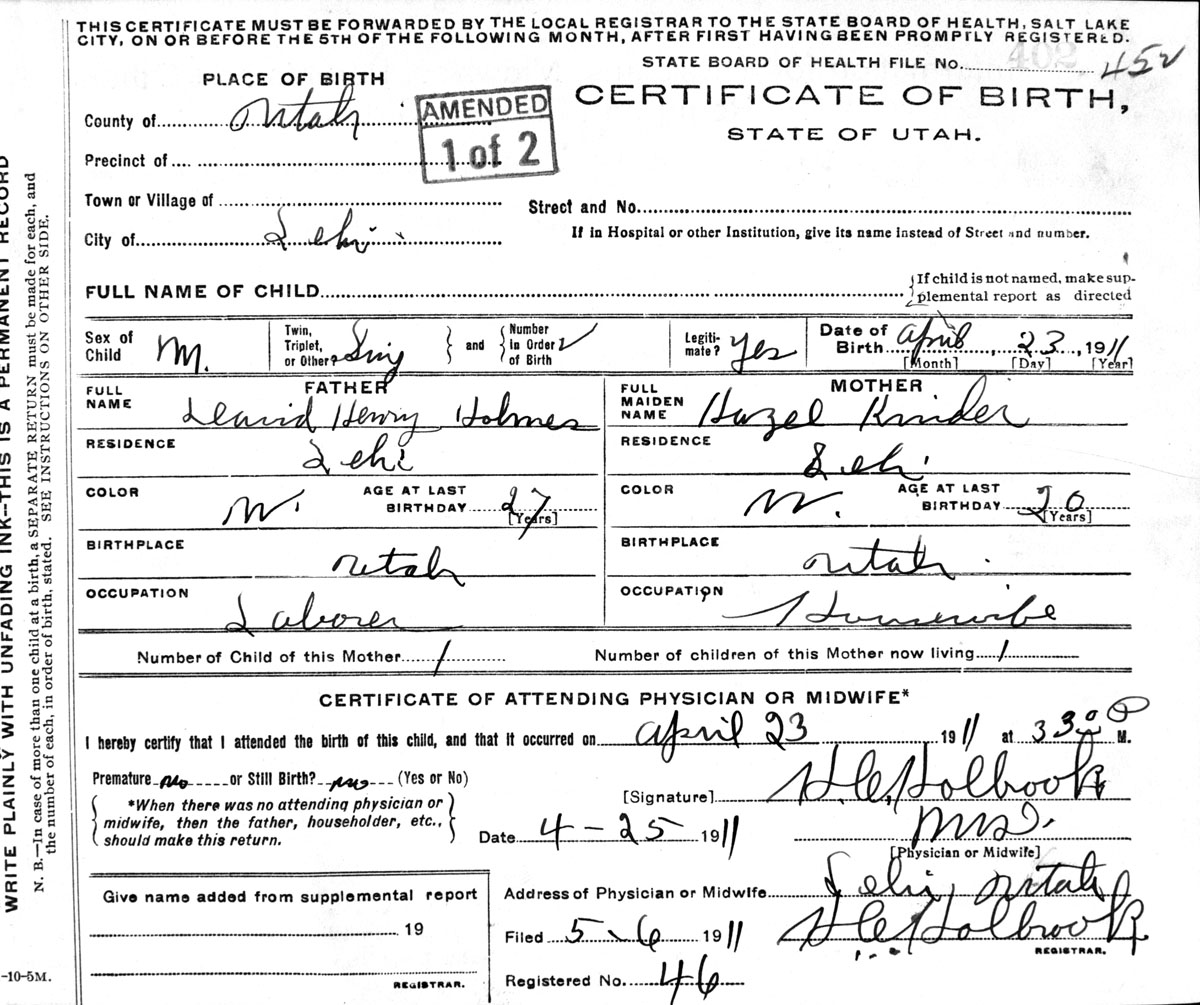 THIS CERTIFICATE MUST BE FORWARDED BY THE LOCAL REGISTRAR TO THE STATE BOARD OF HEALTH, SALT LAKE
CITY, ON OR BEFORE THE 5TH OF THE FOLLOWING MONTH, AFTER FIRST HAVING BEEN PROMPTLY REGISTERED.
STATE BOARD OF HEALTH FILE No. 402 452
PLACE OF BIRTH
CERTIFICATE OF BIRTH,
STATE OF UTAH.
County of Utah
AMENDED
1 of 2
Precinct of
Town or Village of
Street and No.
City of Lehi
If in Hospital or other Institution, give its name instead of Street and number.
FULL NAME OF CHILD
If child is not named, make sup-
plemental report as directed
Sex of Child M.
Twin, Triplet, or Other? Sing
and
Number in Order of Birth
Legiti-mate? Yes
Date of Birth April 23, 1911
[Month] [Day] [Year]
FATHER
FULL NAME David Henry Holmes
RESIDENCE Lehi
COLOR W. AGE AT LAST BIRTHDAY 27 [Years]
BIRTHPLACE Utah
OCCUPATION Laborer
MOTHER
FULL MAIDEN NAME Hazel Kinder
RESIDENCE Lehi
COLOR W. AGE AT LAST BIRTHDAY 20 [Years]
BIRTHPLACE Utah
OCCUPATION Housewife
Number of Child of this Mother 1 Number of children of this Mother now living 1
CERTIFICATE OF ATTENDING PHYSICIAN OR MIDWIFE*
I hereby certify that I attended the birth of this child, and that it occurred on April 23 1911 at 3 30 P M.
Premature no or Still Birth? no (Yes or No)
*When there was no attending physician or
midwife, then the father, householder, etc.,
should make this return.
[Signature] H.C. Holbrook
Date 4-25 1911
[Physician or Midwife]
Give name added from supplemental report
19
REGISTRAR.
Address of Physician or Midwife Lehi, Utah
Filed 5-6 1911 H C Holbrook
REGISTRAR.
Registered No. 46
WRITE PLAINLY WITH UNFADING INK--THIS IS A PERMANENT RECORD
N. B.—In case of more than one child at a birth, a SEPARATE RETURN must be made for each, and
the number of each, in order of birth, stated. SEE INSTRUCTIONS ON OTHER SIDE.
-10-5M.